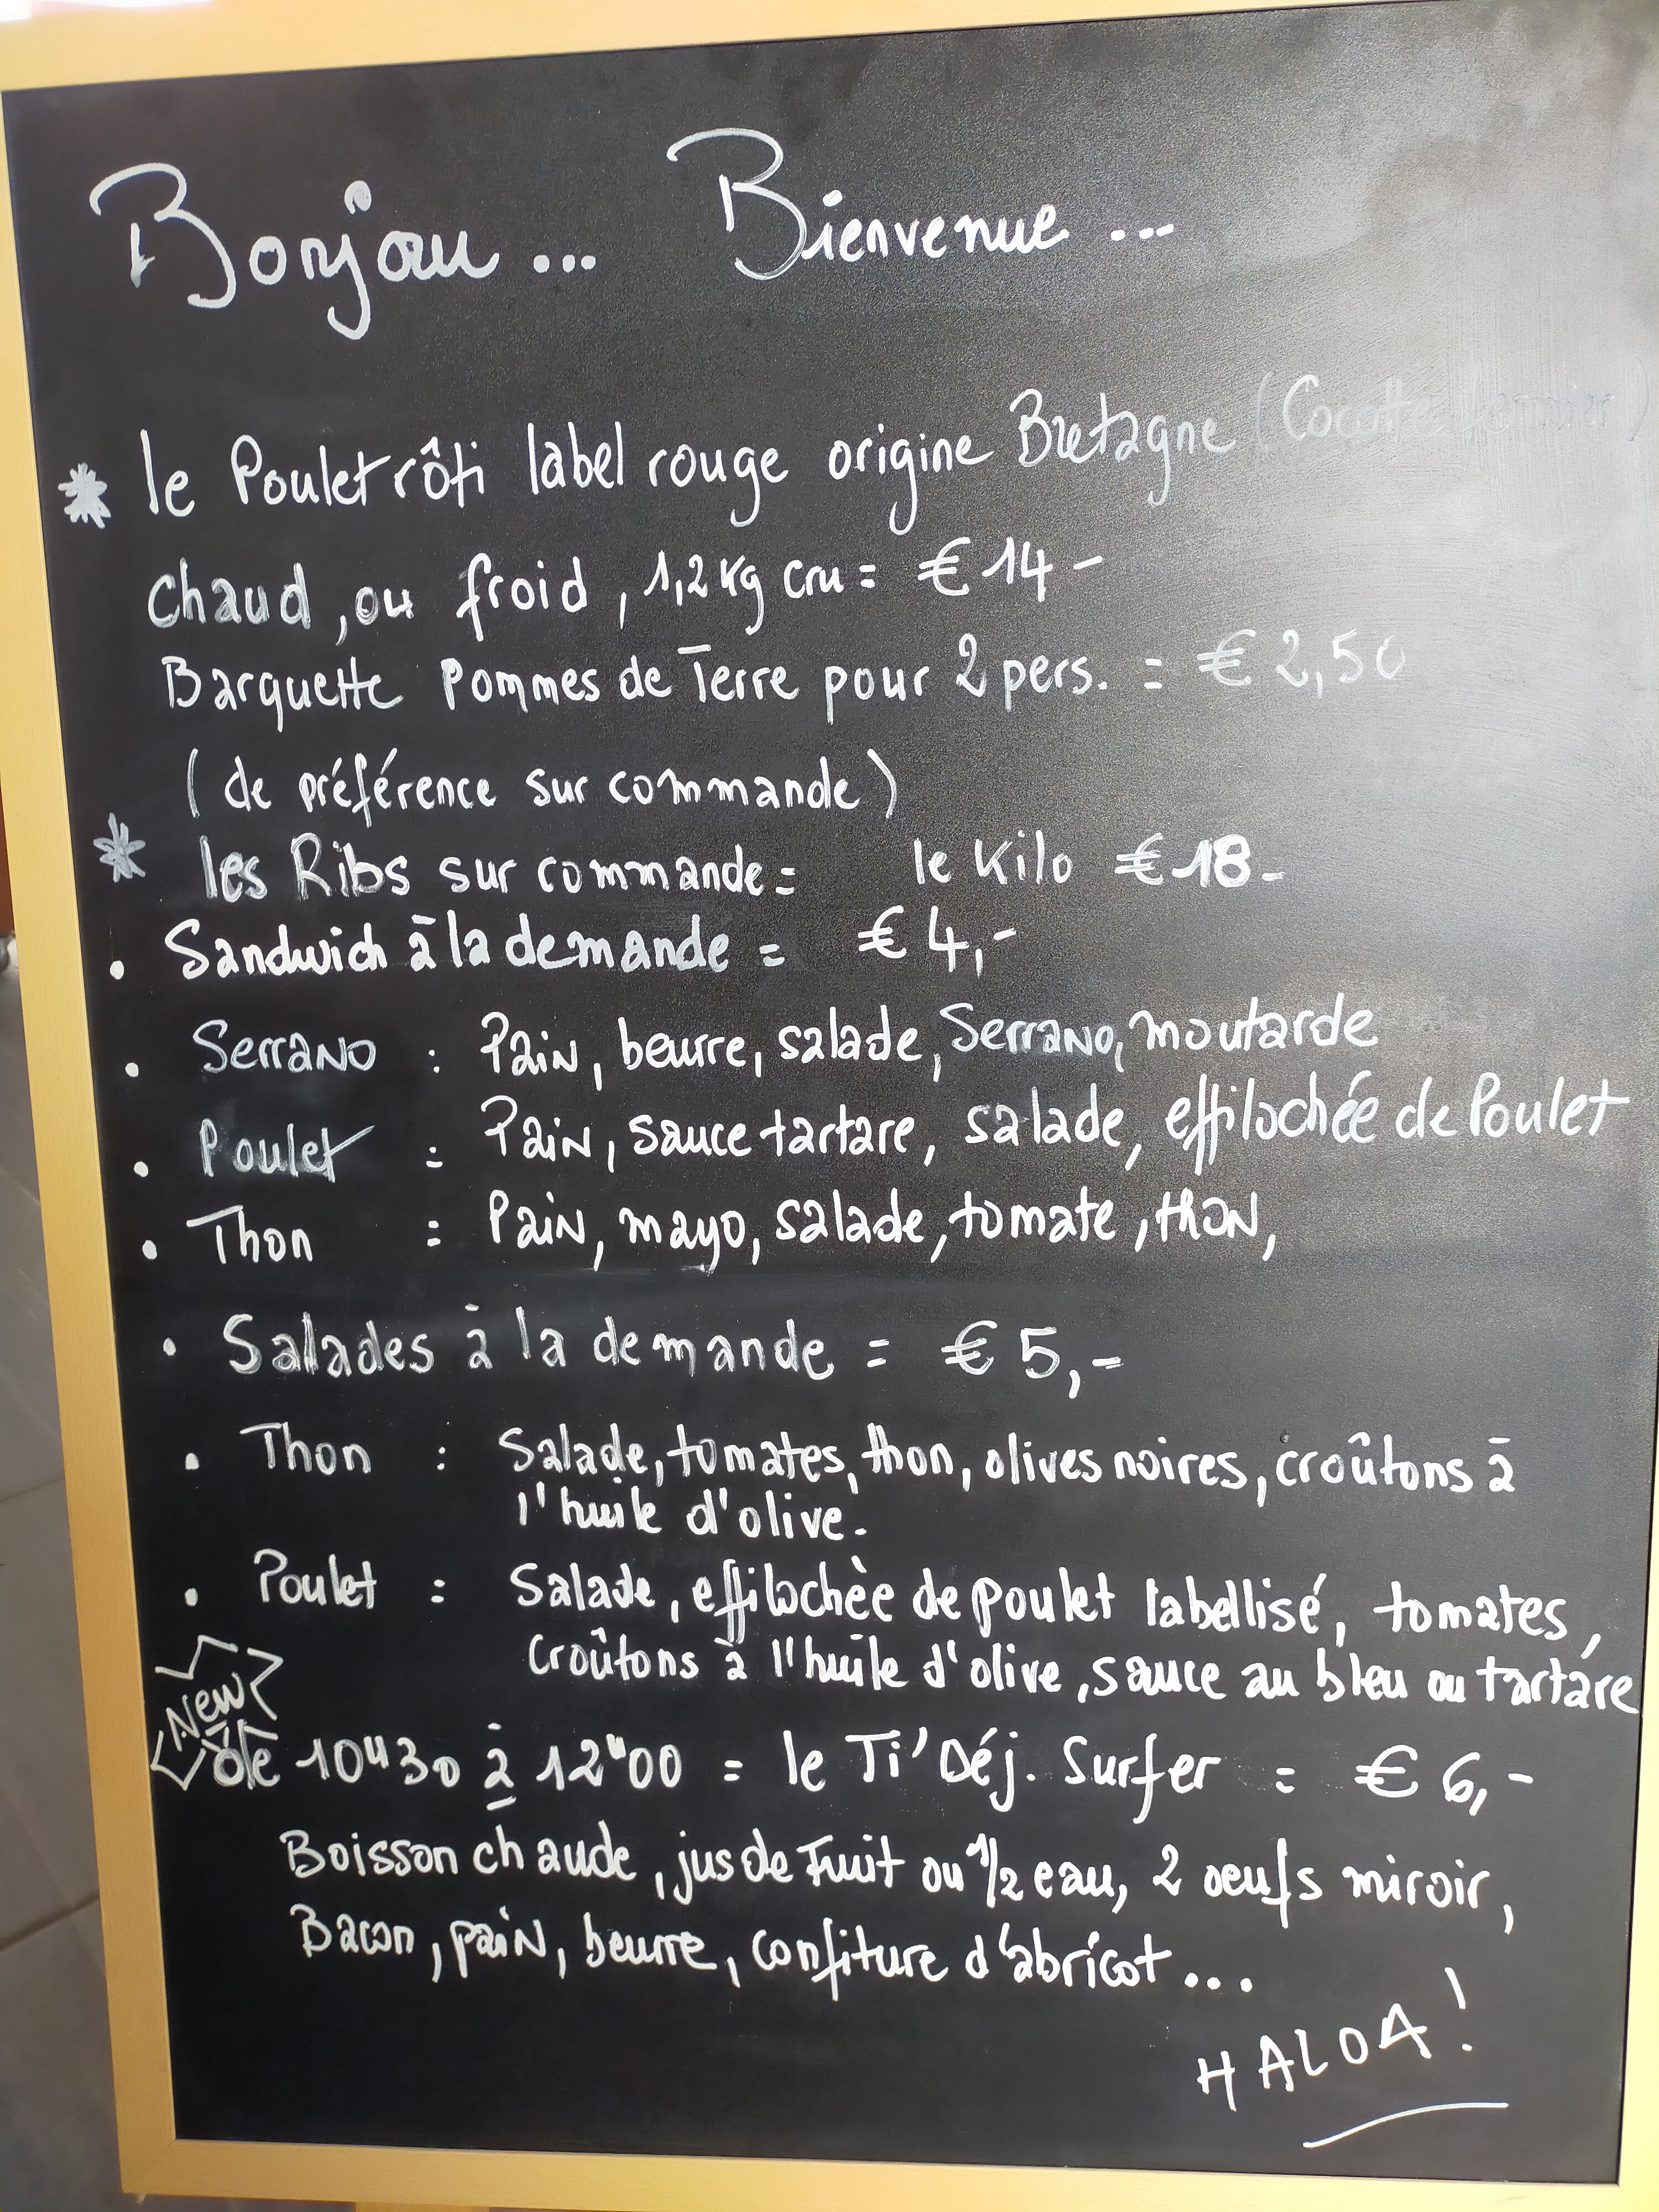 Bonjou... Bienvenue...
* le Poulet rôti label rouge origine Bretagne (Cocotte fermier)
chaud, ou froid, 1,2 kg cru = € 14 -
Barquette Pommes de Terre pour 2 pers. = € 2,50
(de préférence sur commande)
* les Ribs sur commande = le Kilo € 18 -
• Sandwich à la demande = € 4,-
• Serrano : Pain, beurre, salade, Serrano, moutarde
• Poulet = Pain, sauce tartare, salade, effilochée de Poulet
• Thon = Pain, mayo, salade, tomate, thon,
• Salades à la demande = € 5,-
• Thon : Salade, tomates, thon, olives noires, croûtons à
l'huile d'olive.
• Poulet = Salade, effilochèe de poulet labellisé, tomates,
Croûtons à l'huile d'olive, sauce au bleu ou tartare
New
de 10H30 à 12H00 = le Ti' Déj. Surfer = € 6,-
Boisson chaude, jus de Fruit ou 1/2 eau, 2 oeufs miroir,
Bacon, pain, beurre, confiture d'abricot...
HALOA !